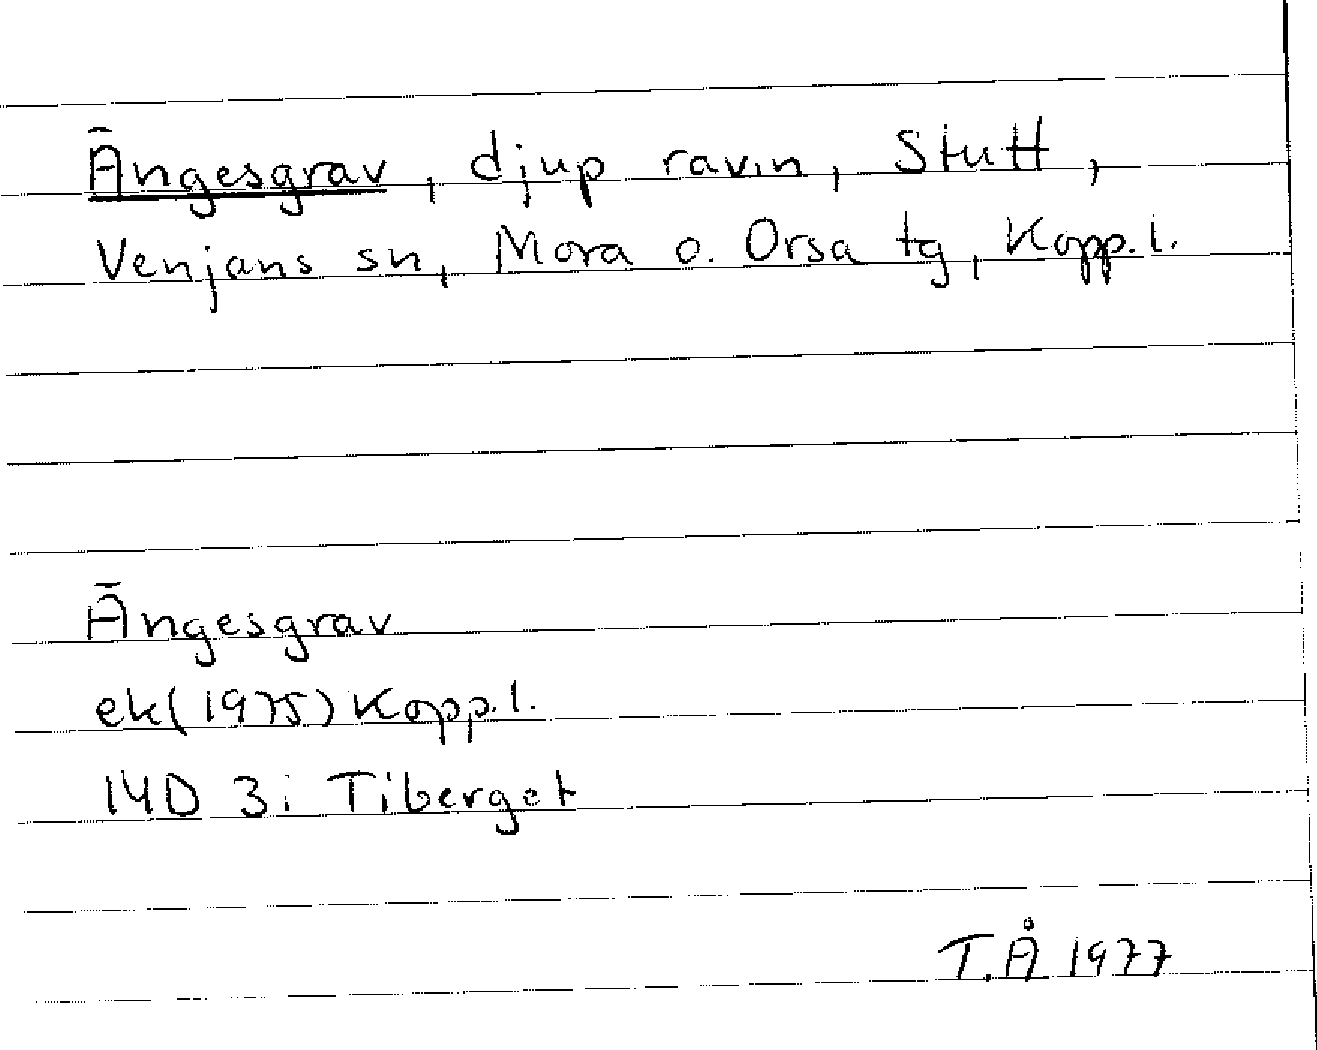 Ängesgrav, djup ravin, Stutt,
Venjans sn, Mora o. Orsa tg, Kopp. l.
Ängesgrav
ek (1975) Kopp. l.
14D 3i Tiberget
T.Å 1977